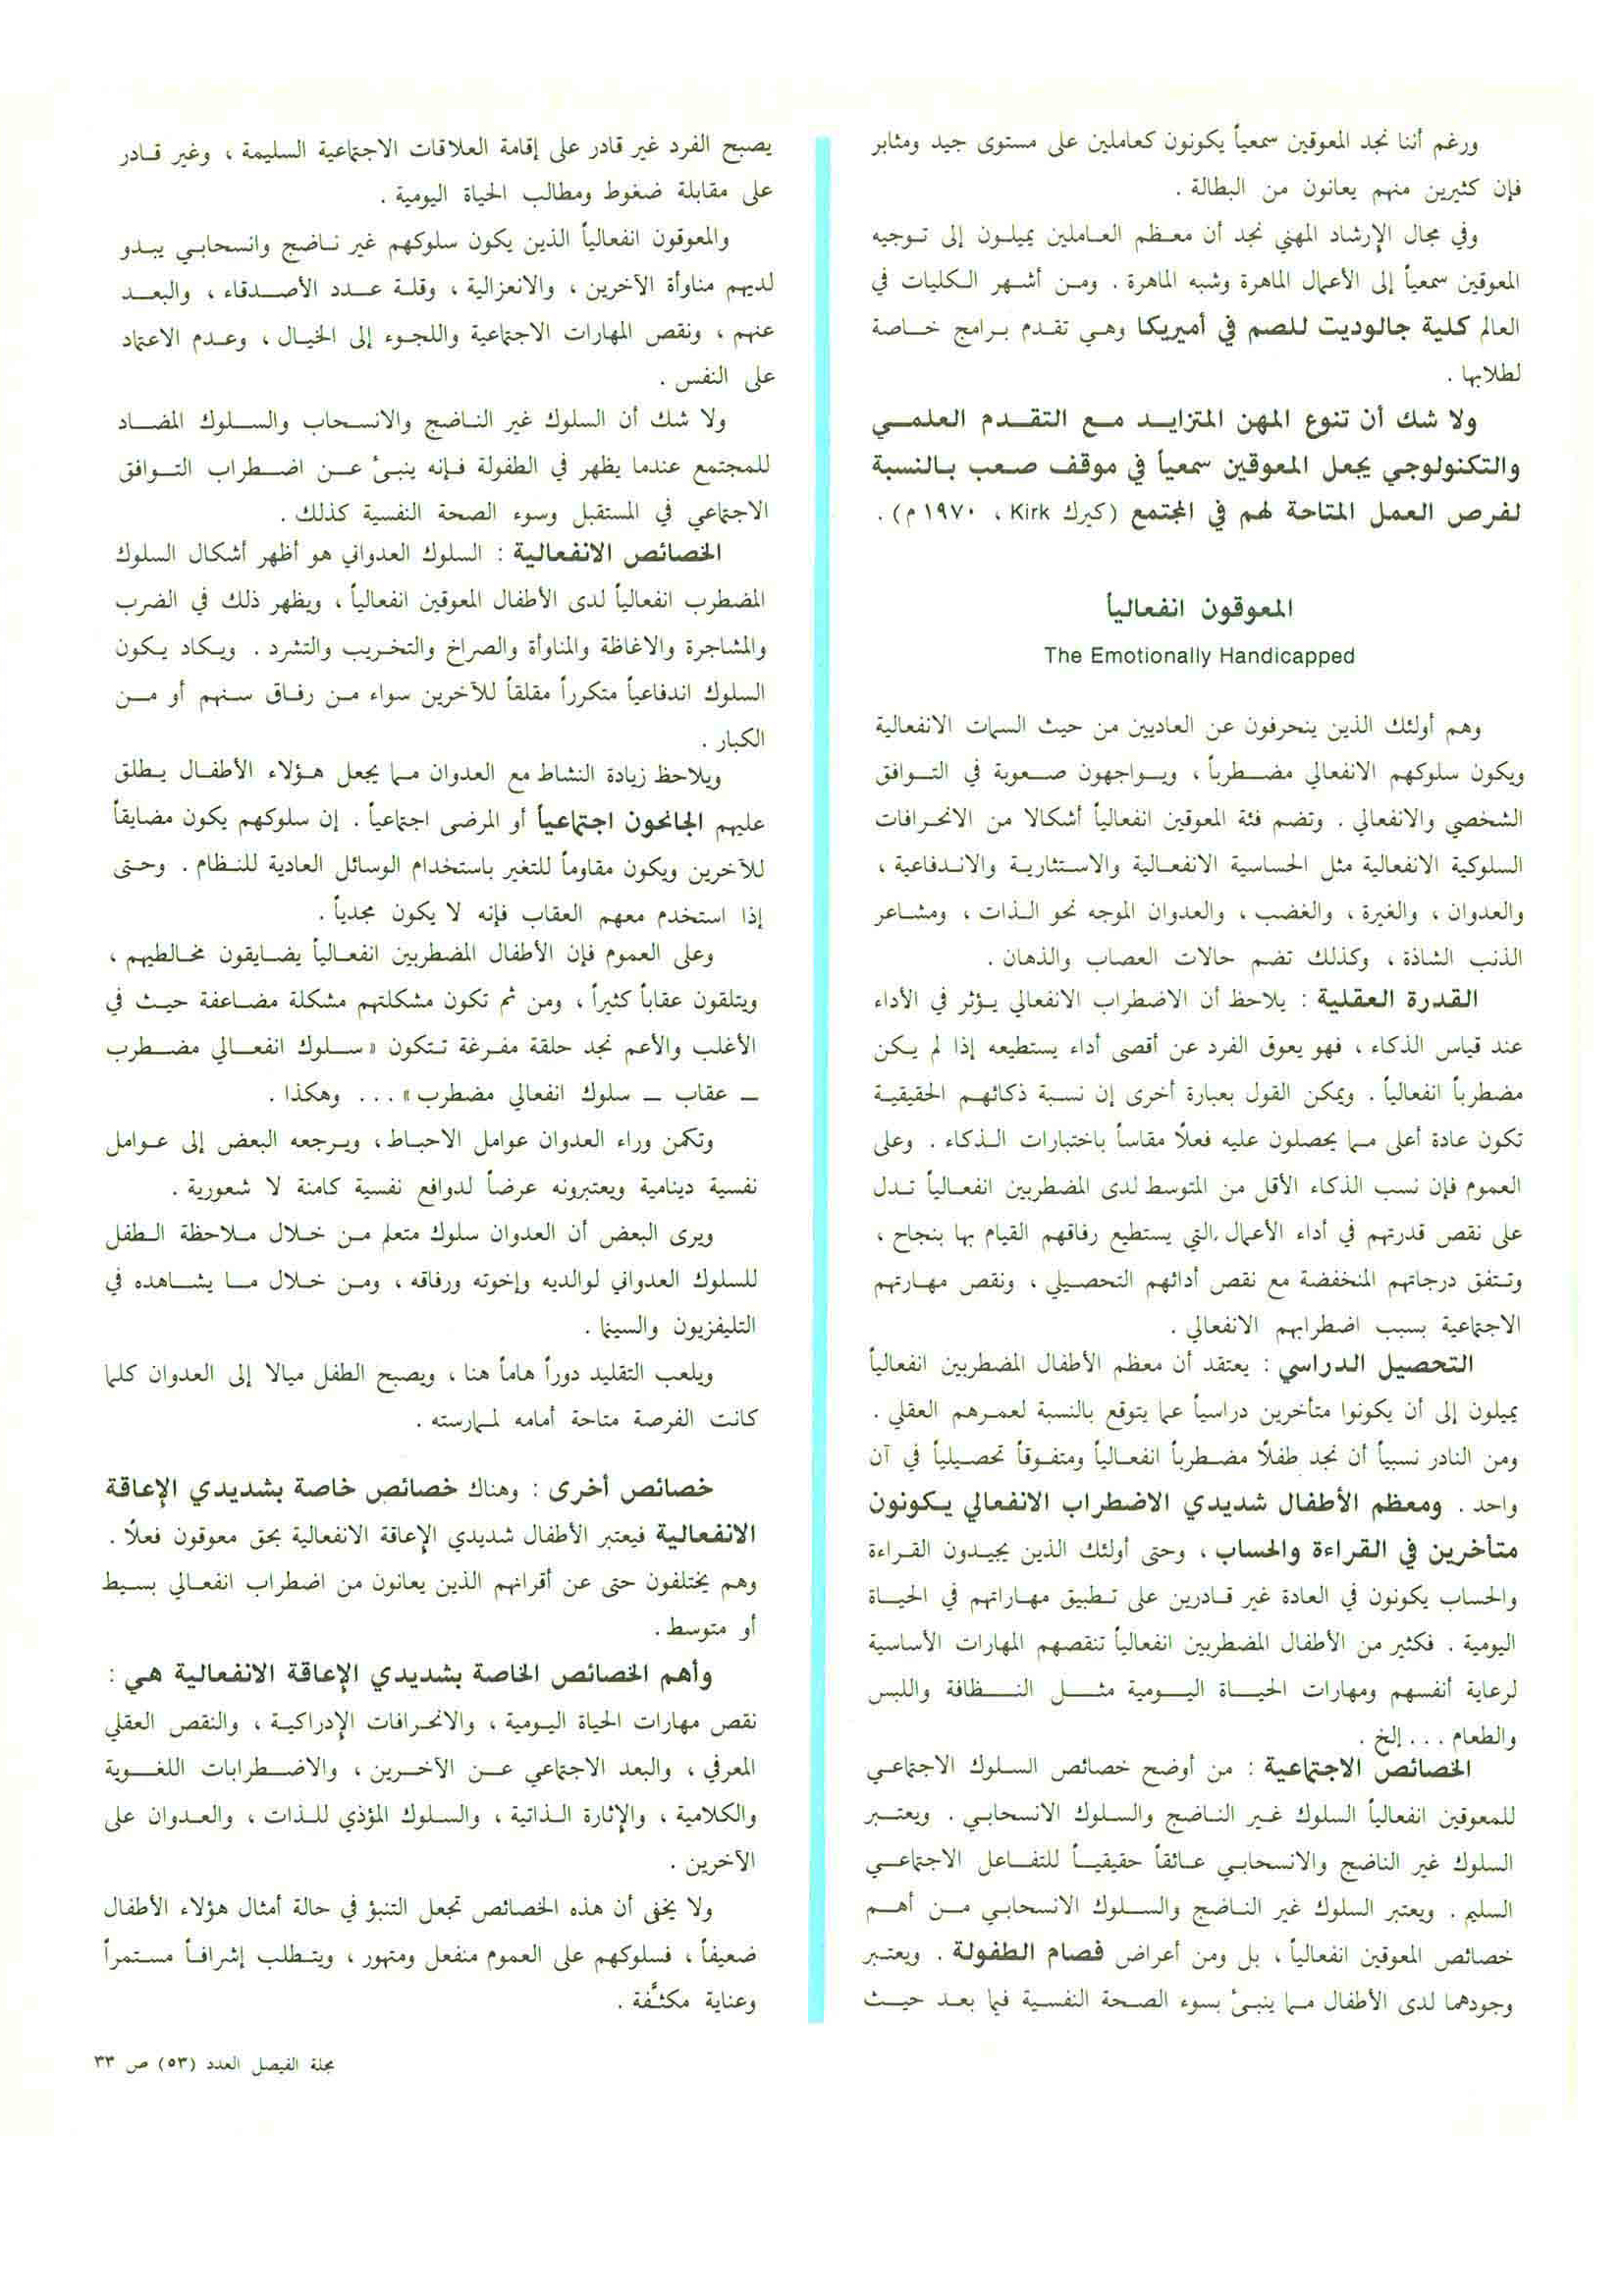 ورغم أننا نجد المعوقين سمعياً يكونون كعاملين على مستوى جيد ومثابر
فإن كثيرين منهم يعانون من البطالة .
وفي مجال الإرشاد المهني نجد أن معظم العاملين يميلون إلى توجيه
المعوقين سمعياً إلى الأعمال الماهرة وشبه الماهرة . ومن أشهر الكليات في
العالم كلية جالوديت للصم في أميريكا وهي تقدم برامج خاصة
لطلابها .
ولا شك أن تنوع المهن المتزايد مع التقدم العلمي
والتكنولوجي يجعل المعوقين سمعياً في موقف صعب بالنسبة
لفرص العمل المتاحة لهم في المجتمع (كيرك Kirk ، ١٩٧٠ م) .
المعوقون انفعالياً
The Emotionally Handicapped
وهم أولئك الذين ينحرفون عن العاديين من حيث السمات الانفعالية
ويكون سلوكهم الانفعالي مضطرباً ، ويواجهون صعوبة في التوافق
الشخصي والانفعالي . وتضم فئة المعوقين انفعالياً أشكالا من الانحرافات
السلوكية الانفعالية مثل الحساسية الانفعالية والاستثارية والاندفاعية ،
والعدوان ، والغيرة ، والغضب ، والعدوان الموجه نحو الذات ، ومشاعر
الذنب الشاذة ، وكذلك تضم حالات العصاب والذهان .
القدرة العقلية : يلاحظ أن الاضطراب الانفعالي يؤثر في الأداء
عند قياس الذكاء ، فهو يعوق الفرد عن أقصى أداء يستطيعه إذا لم يكن
مضطرباً انفعالياً . ويمكن القول بعبارة أخرى إن نسبة ذكائهم الحقيقية
تكون عادة أعلى مما يحصلون عليه فعلاً مقاساً باختبارات الذكاء . وعلى
العموم فإن نسب الذكاء الأقل من المتوسط لدى المضطربين انفعالياً تدل
على نقص قدرتهم في أداء الأعمال التي يستطيع رفاقهم القيام بها بنجاح ،
وتتفق درجاتهم المنخفضة مع نقص أدائهم التحصيلي ، ونقص مهارتهم
الاجتماعية بسبب اضطرابهم الانفعالي .
التحصيل الدراسي : يعتقد أن معظم الأطفال المضطربين انفعالياً
يميلون إلى أن يكونوا متأخرين دراسياً عما يتوقع بالنسبة لعمرهم العقلي .
ومن النادر نسبياً أن نجد طفلاً مضطرباً انفعالياً ومتفوقاً تحصيلياً في آن
واحد . ومعظم الأطفال شديدي الاضطراب الانفعالي يكونون
متأخرين في القراءة والحساب ، وحتى أولئك الذين يجيدون القراءة
والحساب يكونون في العادة غير قادرين على تطبيق مهاراتهم في الحياة
اليومية . فكثير من الأطفال المضطربين انفعالياً تنقصهم المهارات الأساسية
لرعاية أنفسهم ومهارات الحياة اليومية مثل النظافة واللبس
والطعام ... إلخ .
الخصائص الاجتماعية : من أوضح خصائص السلوك الاجتماعي
للمعوقين انفعالياً السلوك غير الناضج والسلوك الانسحابي . ويعتبر
السلوك غير الناضج والانسحابي عائقاً حقيقياً للتفاعل الاجتماعي
السليم . ويعتبر السلوك غير الناضج والسلوك الانسحابي من أهم
خصائص المعوقين انفعالياً ، بل ومن أعراض فصام الطفولة . ويعتبر
وجودهما لدى الأطفال مما ينبئ بسوء الصحة النفسية فيما بعد حيث
يصبح الفرد غير قادر على إقامة العلاقات الاجتماعية السليمة ، وغير قادر
على مقابلة ضغوط ومطالب الحياة اليومية .
والمعوقون انفعالياً الذين يكون سلوكهم غير ناضج وانسحابي يبدو
لديهم مناوأة الآخرين ، والانعزالية ، وقلة عدد الأصدقاء ، والبعد
عنهم ، ونقص المهارات الاجتماعية واللجوء إلى الخيال ، وعدم الاعتماد
على النفس .
ولا شك أن السلوك غير الناضج والانسحاب والسلوك المضاد
للمجتمع عندما يظهر في الطفولة فإنه ينبئ عن اضطراب التوافق
الاجتماعي في المستقبل وسوء الصحة النفسية كذلك .
الخصائص الانفعالية : السلوك العدواني هو أظهر أشكال السلوك
المضطرب انفعالياً لدى الأطفال المعوقين انفعالياً ، ويظهر ذلك في الضرب
والمشاجرة والاغاظة والمناوأة والصراخ والتخريب والتشرد . ويكاد يكون
السلوك اندفاعياً متكرراً مقلقاً للآخرين سواء من رفاق سنهم أو من
الكبار .
ويلاحظ زيادة النشاط مع العدوان مما يجعل هؤلاء الأطفال يطلق
عليهم الجانحون اجتماعياً أو المرضى اجتماعياً . إن سلوكهم يكون مضايقاً
للآخرين ويكون مقاوماً للتغير باستخدام الوسائل العادية للنظام . وحتى
إذا استخدم معهم العقاب فإنه لا يكون مجدياً .
وعلى العموم فإن الأطفال المضطربين انفعالياً يضايقون مخالطيهم ،
ويتلقون عقاباً كثيراً ، ومن ثم تكون مشكلتهم مشكلة مضاعفة حيث في
الأغلب والأعم نجد حلقة مفرغة تتكون « سلوك انفعالي مضطرب
ـ عقاب ـ سلوك انفعالي مضطرب » ... وهكذا .
وتكمن وراء العدوان عوامل الاحباط ، ويرجعه البعض إلى عوامل
نفسية دينامية ويعتبرونه عرضاً لدوافع نفسية كامنة لا شعورية .
ويرى البعض أن العدوان سلوك متعلم من خلال ملاحظة الطفل
للسلوك العدواني لوالديه وإخوته ورفاقه ، ومن خلال ما يشاهده في
التليفزيون والسينما .
ويلعب التقليد دوراً هاماً هنا ، ويصبح الطفل ميالا إلى العدوان كلما
كانت الفرصة متاحة أمامه لممارسته .
خصائص أخرى : وهناك خصائص خاصة بشديدي الإعاقة
الانفعالية فيعتبر الأطفال شديدي الإعاقة الانفعالية بحق معوقون فعلاً .
وهم يختلفون حتى عن أقرانهم الذين يعانون من اضطراب انفعالي بسيط
أو متوسط .
وأهم الخصائص الخاصة بشديدي الإعاقة الانفعالية هي :
نقص مهارات الحياة اليومية ، والانحرافات الإدراكية ، والنقص العقلي
المعرفي ، والبعد الاجتماعي عن الآخرين ، والاضطرابات اللغوية
والكلامية ، والإثارة الذاتية ، والسلوك المؤذي للذات ، والعدوان على
الآخرين .
ولا يخفى أن هذه الخصائص تجعل التنبؤ في حالة أمثال هؤلاء الأطفال
ضعيفاً ، فسلوكهم على العموم منفعل ومتهور ، ويتطلب إشرافاً مستمراً
وعناية مكثَّفة .
مجلة الفيصل العدد (٥٣) ص ٣٣